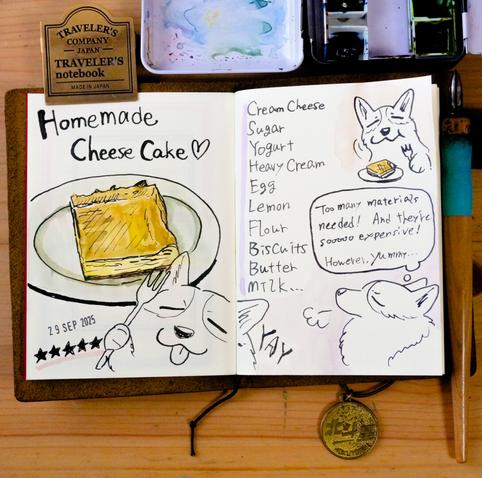 TRAVELER'S
COMPANY
JAPAN
TRAVELER'S
notebook
MADE IN JAPAN
Homemade
Cheese Cake♡
29 SEP 2025
★★★★★
Cream Cheese
Sugar
Yogurt
Heavy Cream
Egg
Lemon
Flour
Biscuits
Butter
Milk...
Too many materials
needed! And they're
sooooo expensive!
However, Yummy...
YAY